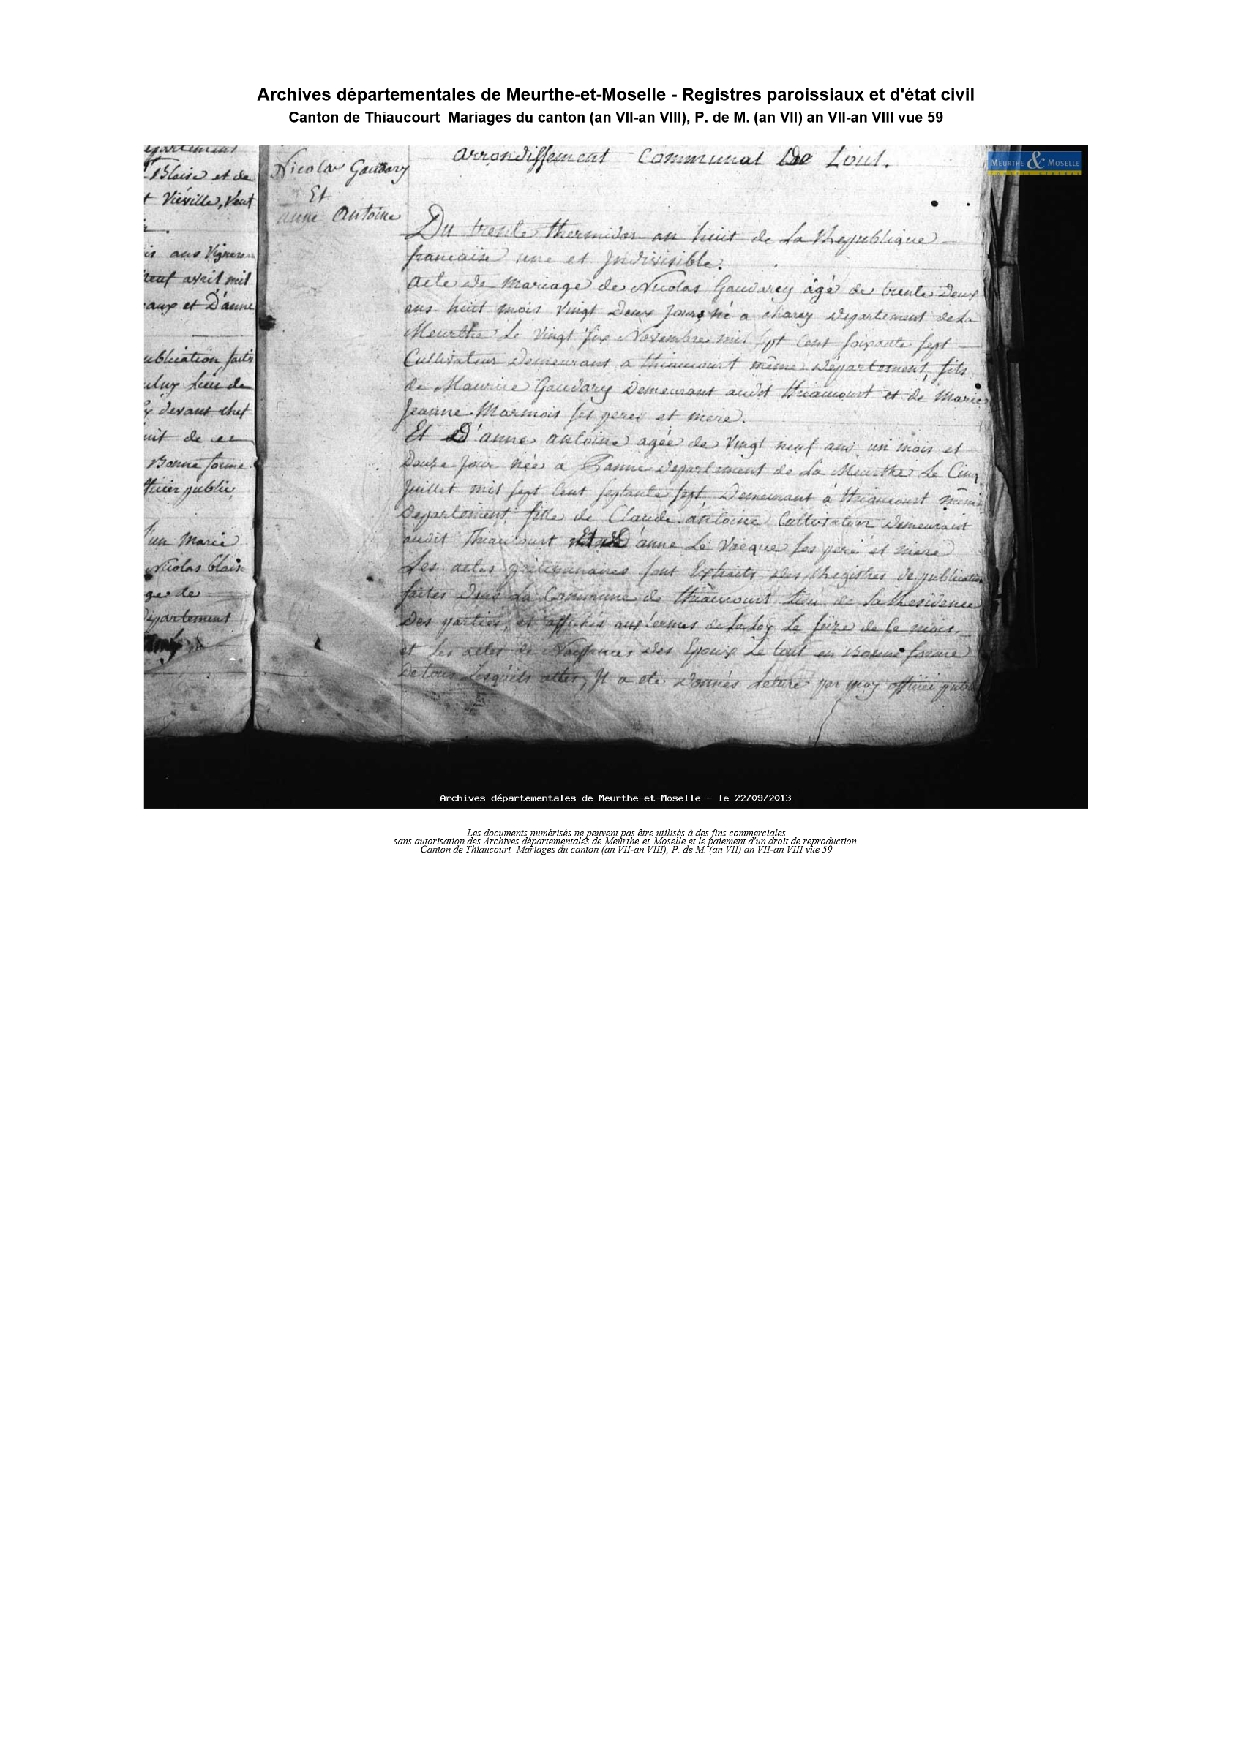 Archives départementales de Meurthe-et-Moselle - Registres paroissiaux et d'état civil
Canton de Thiaucourt Mariages du canton (an VII-an VIII), P. de M. (an VII) an VII-an VIII vue 59
MEURTHE & MOSELLE
Blaise et de
t Viéville, Veut
is ans Vigneron
neuf avril mil
aux et D'anne
ublication faits
lieu de
devant chef
uit de ce
Bonne forme
fficier publié
un Marie
Nicolas blaise
ge de
épartement
Nicolas Gaudary
Et
anne Antoine
arrondissement Communal De Toul.
Du trente thermidor an huit de La Republique
francaise une et Jndivisible.
acte de Mariage de Nicolas Gaudarey âgé de trente Deux
ans huit mois Vingt Deux Jours né a charey Departement de La
Meurthe Le Vingt six Novembre mil sept Cent soixante sept
Cultivateur Demeurant a thiaucourt même Departement, fils
de Maurice Gaudary Demeurant audit thiaucourt et de Marie
Jeanne Marmois ses peres et mere.
Et D'anne antoine agée de Vingt neuf ans un mois et
Douse Jour née à Departement de La Meurthe Le Cinq
Juillet mil sept Cent septante sept Demeurant à thiaucourt même
Departement fille de Claude antoine Cultivateur Demeurant
audit Thiaucourt Et D'anne Le Vacque ses peré et mere
Les actes sont Extraits des Registres de publication
faites dans La Commune de thiaucourt Lieu de La Residence
Des parties, et affichés aux termes de la Loy Le seize de ce mois
et Les actes de Naissances des Epoux Le tout en Bonne forme
De tous Lesquels actes, Jl a eté Donnés Lecture par moy officier public
Archives départementales de Meurthe et Moselle - le 22/09/2013
Les documents numérisés ne peuvent pas être utilisés à des fins commerciales
sans autorisation des Archives départementales de Meurthe et Moselle et le paiement d'un droit de reproduction
Canton de Thiaucourt Mariages du canton (an VII-an VIII), P. de M. (an VII) an VII-an VIII vue 59